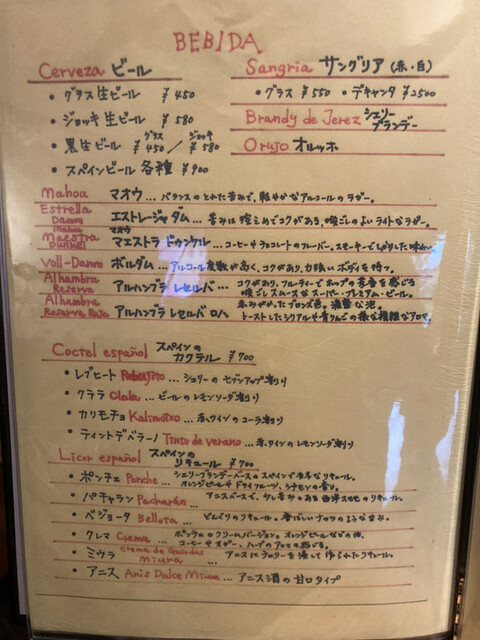 BEBIDA
Cerveza ビール
・グラス生ビール ¥450
・ジョッキ生ビール ¥580
・黒生ビール グラス ¥450 / ジョッキ ¥580
・スペインビール 各種 ¥900
Sangria サングリア (赤・白)
・グラス ¥550 ・デキャンタ ¥2500
Brandy de Jerez シェリーブランデー
Orujo オルッホ
Mahou マオウ... バランスのとれた苦みで、軽やかなアルコールのラガー。
Estrella Damm エストレージャ ダム... 苦みは控えめでコクがある、喉ごしのよいライトなラガー。
Mahou Maestra Dunkel マオウ マエストラ ドゥンケル... コーヒーやチョコレートのフレーバー。スモーキーで
Voll-Damm ボルダム... アルコール度数が高く、コクがあり、力強いボディを持つ。
Alhambra Reserva アルハンブラ レセルバ... コクがあり、フルーティーでホップの芳香を感じる
喉ごしスムースなスーパー・プレミアム・ビール。
Alhambra Reserva Roja アルハンブラ レセルバ ロハ 赤みがかったブロンズ色。濃密な泡。
トーストしたシリアルや青りんごの様な複雑なアロマ。
Coctel español スペインのカクテル ¥700
・レブヒート Rebujito... シェリーのセブンアップ割り
・クララ Clala... ビールのレモンソーダ割り
・カリモチョ Kalimotxo... 赤ワインのコーラ割り
・ティントデバラーノ Tinto de verano... 赤ワインのレモンソーダ割り
Licor español スペインのリキュール ¥700
・ポンチェ Ponche... シェリーブランデーベースのスペインで有名なリキュール。
オレンジピールやドライフルーツ、シナモンの香り。
・パチャラン Pacharán... アニスベースで、
・ベジョータ Bellota... どんぐりのリキュール。香ばしいナッツのような甘み。
・クレマ Cuema... ポンチェのクリームバージョン。オレンジピールなどの他、
・ミウラ crema de Guindas Miura... アニスにチェリーを浸して作られたリキュール。
・アニス Anis Dulce Miura... アニス酒の甘口タイプ